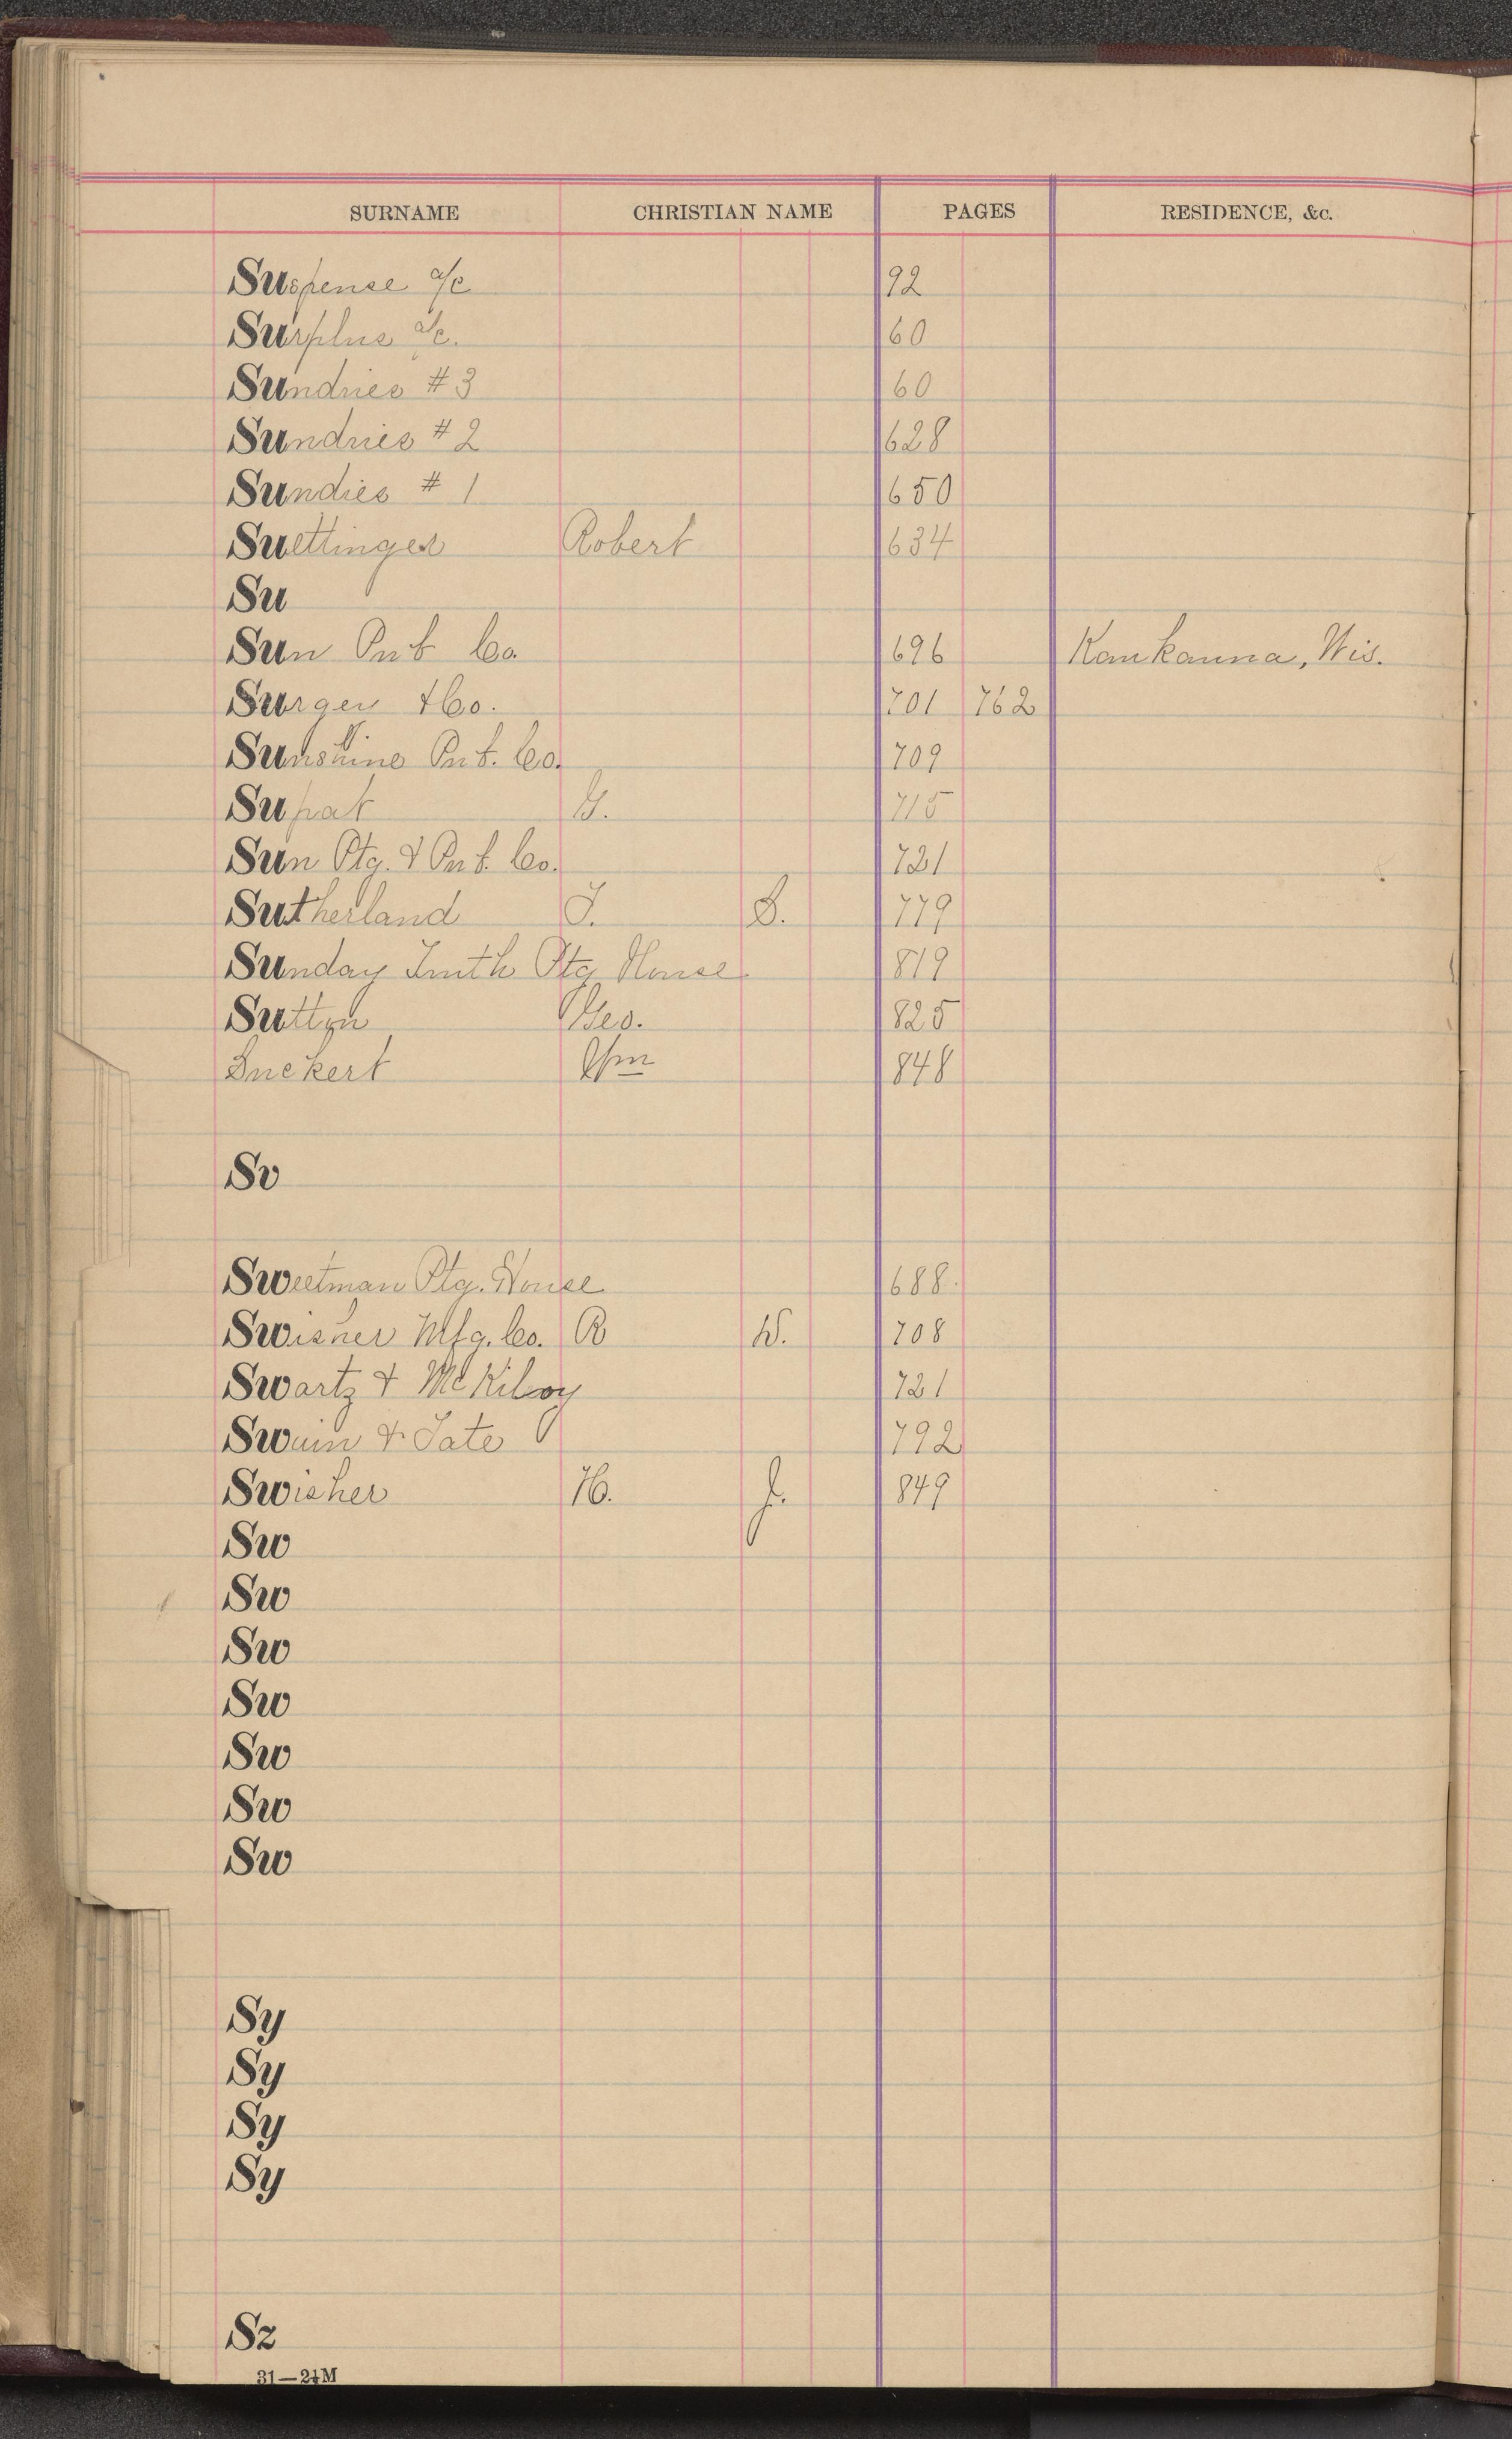 SURNAME CHRISTIAN NAME PAGES RESIDENCE, &c.
Suspense a/c 92
Surplus a/c. 60
Sundries #3 60
Sundries #2 628
Sundies #1 650
Suettinger Robert 634
Su
Sun Pub Co. 696 Kaukauna, Wis.
Surgey & Co. 701 762
Sunshine Pub. Co. 709
Supat G. 715
Sun Ptg. & Pub. Co. 721
Sutherland J. S. 779
Sunday Truth Ptg House 819
Sutton Geo. 825
Suckert Wm 848
Sv
Sweetman Ptg. House 688.
Swisner Mfg. Co. R W. 708
Swartz & McKilvoy 721
Swain & Tate 792
Swisher H. J. 849
Sw
Sw
Sw
Sw
Sw
Sw
Sw
Sy
Sy
Sy
Sy
Sz
31—2½M